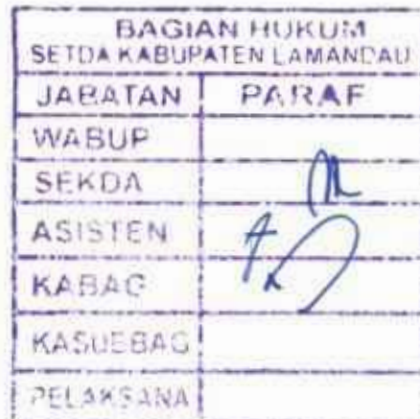 BAGIAN HUKUM
SETDA KABUPATEN LAMANDAU
JABATAN PARAF
WABUP
SEKDA
ASISTEN
KABAG
KASUBBAG
PELAKSANA